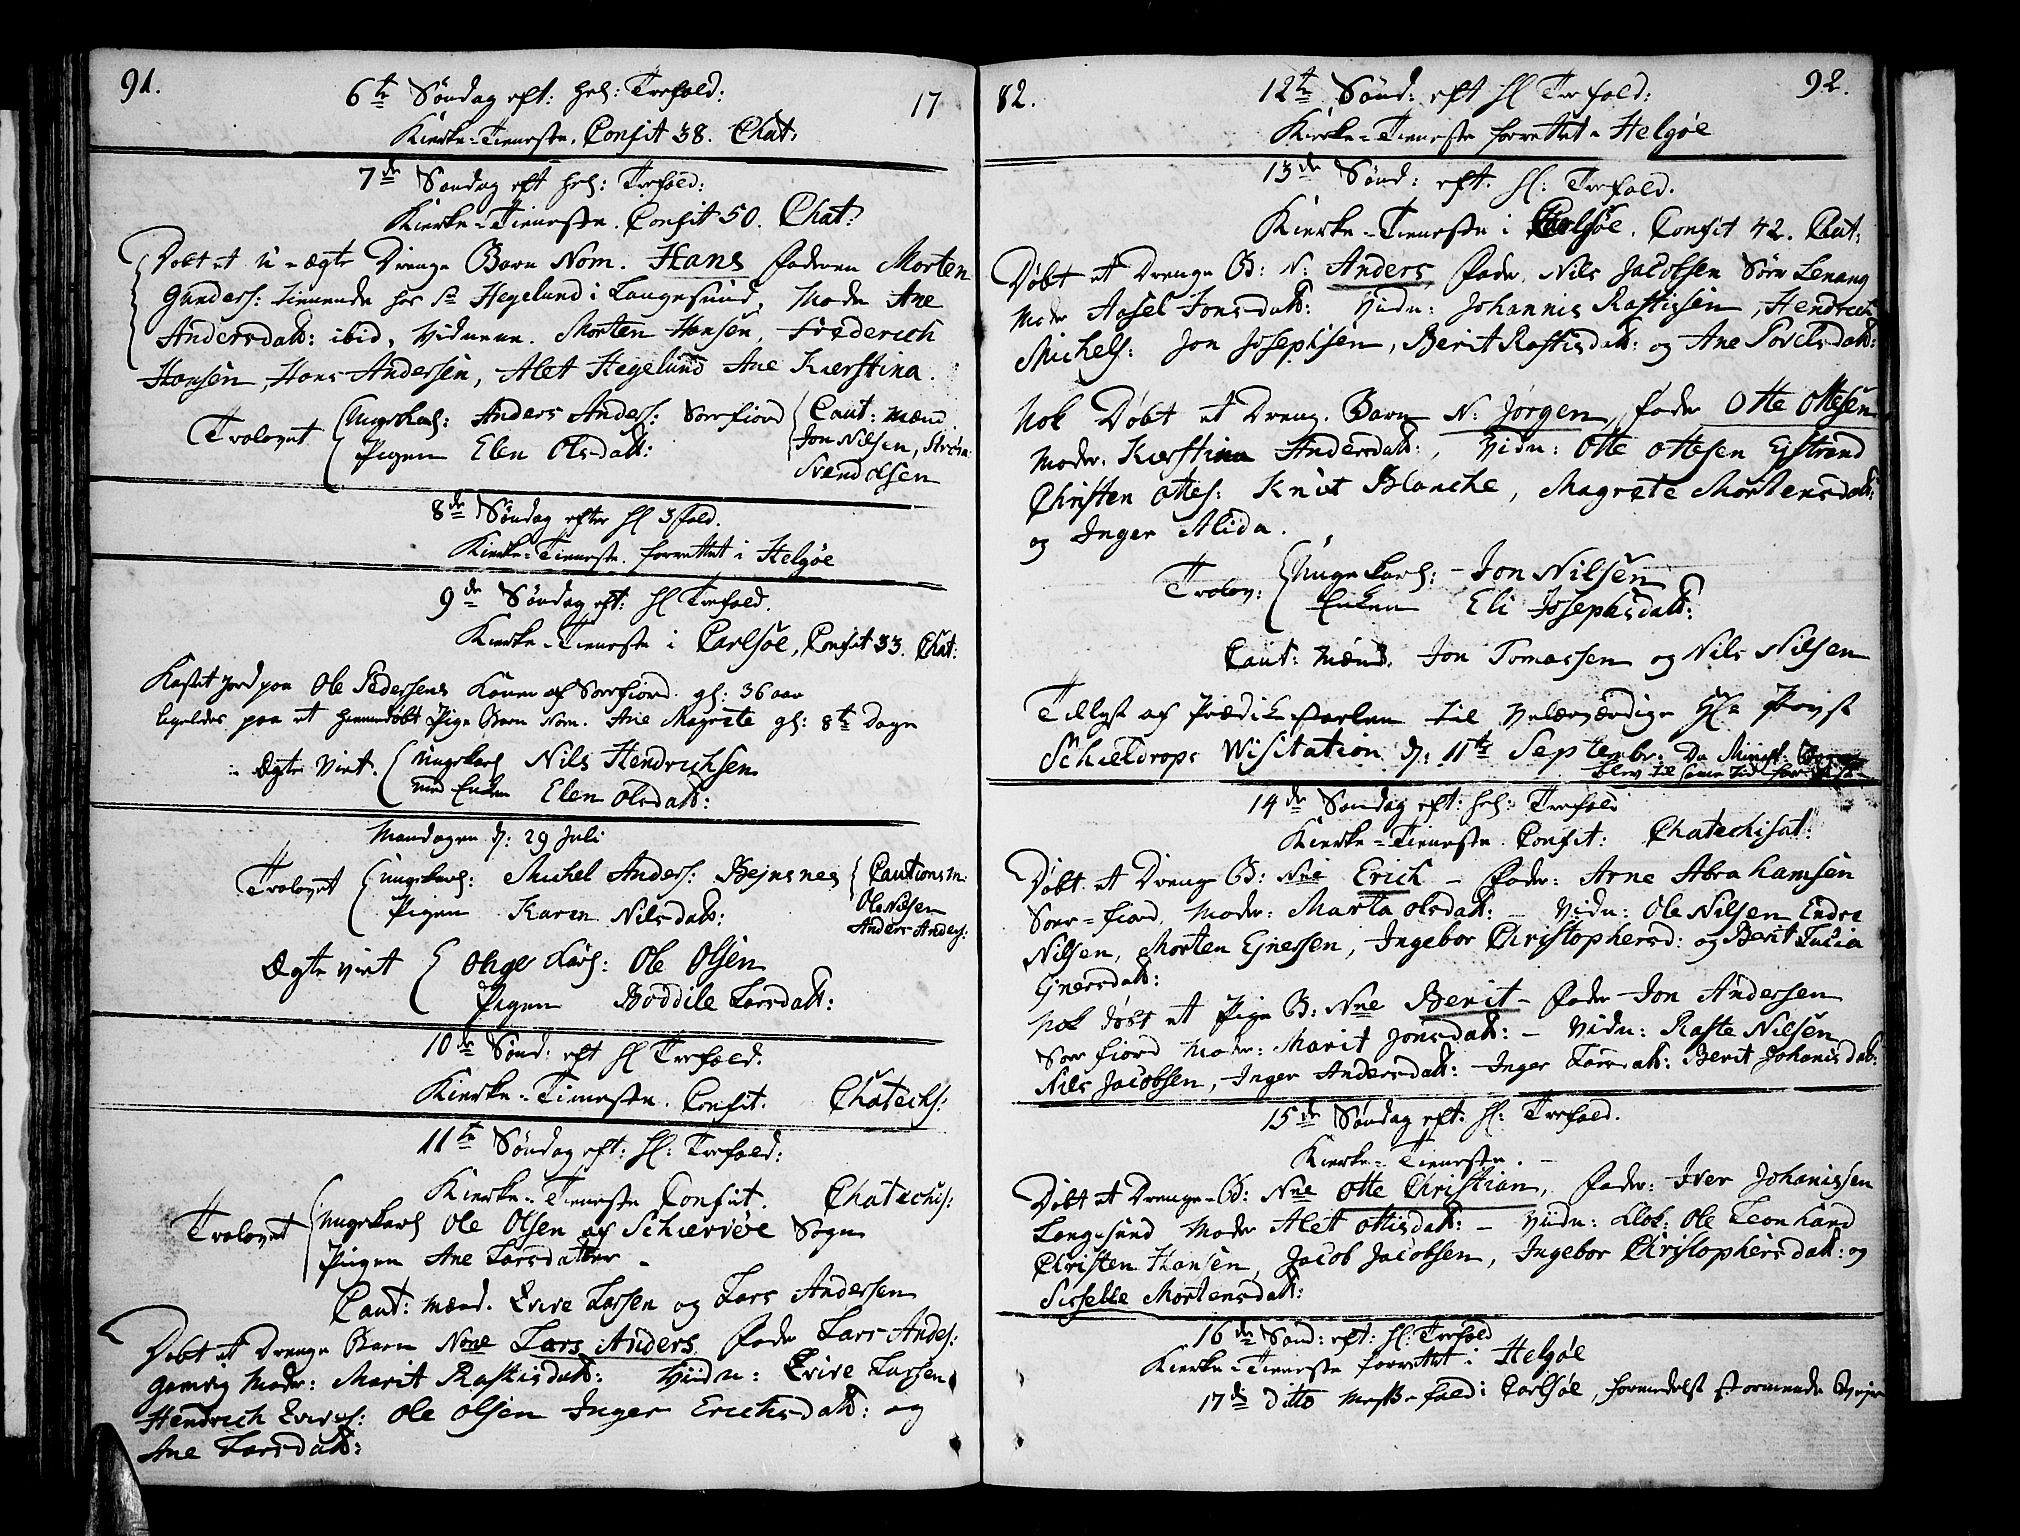 91.
6te Søndag eft: Hel: Trefold: 17
Kierke-Tieneste. Confit 38. Chat:
7de Søndag eft Hel: Trefold:
Kierke-Tieneste. Confit 50. Chat:
Døbt et u-ægte Drenge Barn Nom. Hans Faderen Morten
Gunders: tienende hos Sr Hegelund i Langesund, Mode Ane
Andersdatt: ibid, Vidnerne. Morten Hansen, Frederich
Hansen, Hans Andersen, Alet Hegelund Ane Kierstina.
Trolovet Ungekarl: Anders Anders: Sørfiord Caut: mænd
Pigen Elen Olsdatt: Jon Nilsen,
Svend Olsen
8de Søndag efter Hl 3fold.
Kierke-Tieneste. forrettet i Helgøe
9de Søndag eft: Hl Trefold.
Kierke-Tieneste i Carlsøe, Confit 33. Chat:
Kastet Jord paa Ole Pedersens Kone af Sørfiord. gl: 36 aar
ligeledes paa et hiemmedøbt Pige Barn Nom. Ane Magrete gl: 8te Dage
Ægte Viet. Ungekarl Nils Hendrichsen
med Enken Elen Olsdatt:
Mandagen d: 29 Juli
Trolovet Ungekarl: Michel Anders: Bejnsnes Cautionsm:
Pigen Karen Nilsdatt: Ole Nilsen
Anders Anders:
Ægte viet Unge Karl: Ole Olsen
Pigen Boddile Larsdatt:
10de Sønd: eft Hl Trefold.
Kierke-Tieneste. Confit. Chatechs:
11te Søndag eft: Hl: Trefold:
Kierke-Tieneste Confit. Chatechis:
Trolovet Ungekarl Ole Olsen af Schiervøe Sogn
Pigen Ane Larsdatter
Caut: mænd. Evire Larsen og Lars Andersen
Døbt et Drenge Barn None Lars Anders Fade Lars Anders:
Moder: Marit Rastisdatt: Vidn: Evire Larsen
Hendrich Evires: Ole Olsen Inger Erichsdatt: og
Ane Larsdatt:
82. 92.
12te Sønd: eft Hl Trefold:
Kierke-Tieneste forrettet Helgøe
13de Sønd: eft. Hl: Trefold.
Kierke-Tieneste i Carlsøe. Confit 42. Chat:
Døbt et Drenge B: N: Anders Fade. Nils Jacobsen Sørlenang
Moder Aasel Jonsdatt: Vidn: Johannis Rastissen, Hendrich
Michels: Jon Josephsen, Berit Rastisdatt: og Ane Povelsdatt:
Nok Døbt et Dreng. Barn N: Jørgen, fader Otte Ottesen
Moder: Kierstina Andersdatt:, Vidn: Otte Ottesen Ejstrand
Christen Ottes: Knut Blanche, Magrete Mortensdatt:
og Inger Alida.
Trolov: Ungekarl: Jon Nilsen
Enken Eli Josephsdatt:
Caut: Mænd. Jon Tomassen og Nils Nilsen
Tillyst af Prædikestoelen til Velærværdige Hr Provst
Schieldrops Wisitation d: 11te Septembr: Da
blev til samme Tid
14de Søndag eft: Hel: Trefold
Kierke-Tieneste Confit: Chatechisat:
Døbt et Drenge B: Nne Erich Fader: Arne Abrahamsen
Sørfiord, Moder: Marta Olsdatt: Vidn: Ole Nilsen Endre
Nilsen, Morten Ejnersen, Ingebor Christophersd: og Berit Lucia
Ejnersdatt:
Nok døbt et Pige B: Nne Berit Fader Jon Andersen
Sørfiord Moder: Marit Jonsdatt: Vidn: Raste Nilsen
Nils Jacobsen, Inger Andersdatt: Inger Larsdatt: Berit Johanisdatt:
15de Søndag eft: Hl: Trefold.
Kierke-Tieneste.
Døbt et Drenge-B: Nne Otte Christian, Fader: Iver Johanissen
Langesund Moder Alet Ottisdatt: Vidn: Klok: Ole Leonhard
Christen Hansen, Jacob Jacobsen, Ingebor Christophersdatt: og
Sisselle Mortensdatt:
16de Sønd: eft: Hl: Trefold
Kierke-Tieneste forrettet i Helgøe
17de ditto Messefald i Carlsøe, formedelst stormende Vejr